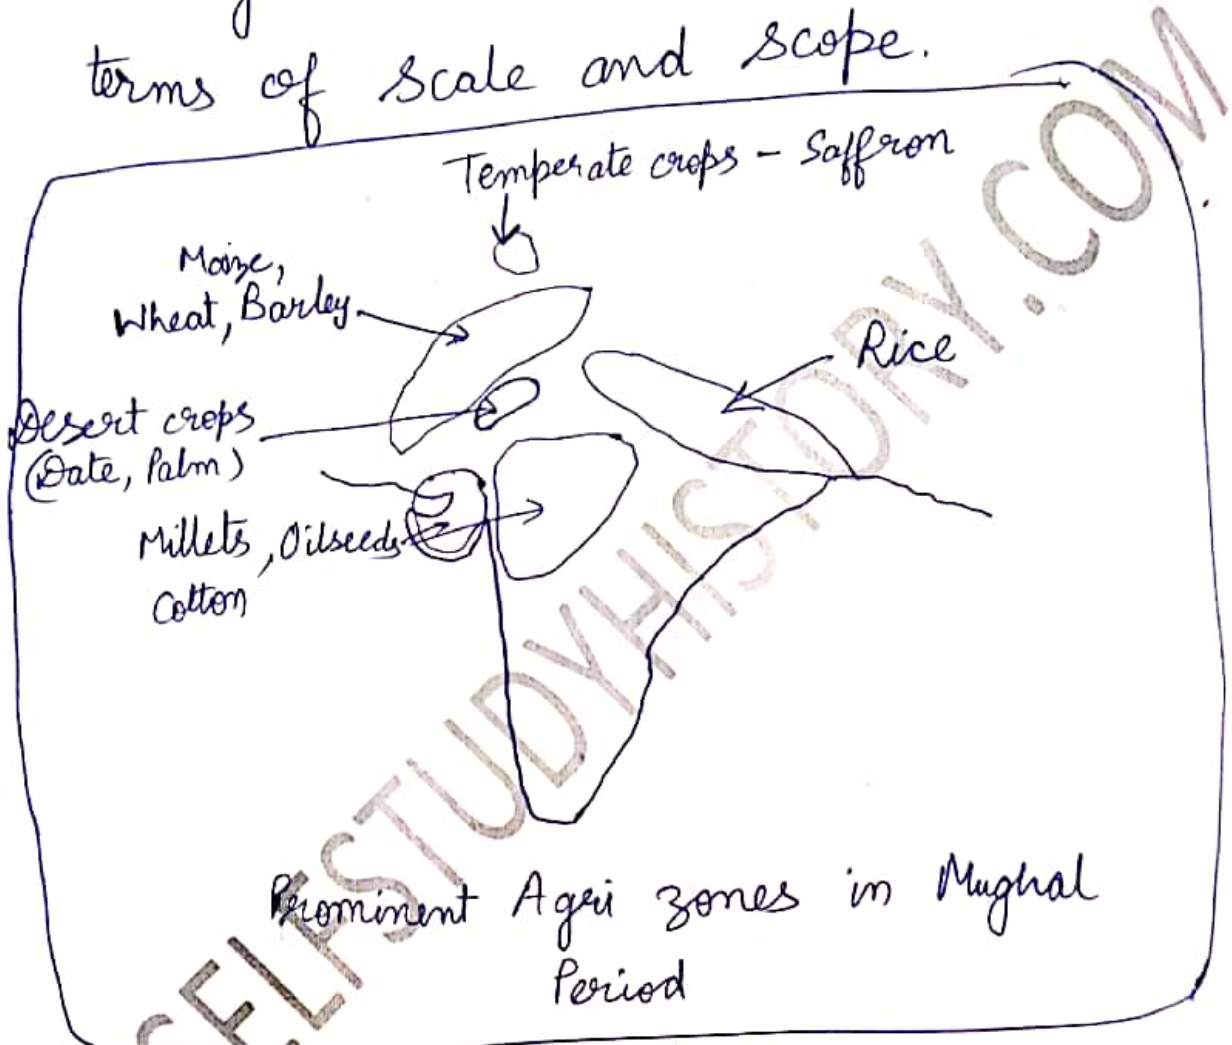 terms of scale and scope.
Temperate crops - Saffron
Maize,
Wheat, Barley
Rice
Desert crops
(Date, Palm)
Millets, Oilseeds
Cotton
Prominent Agri zones in Mughal
Period
SELFSTUDYHISTORY.COM